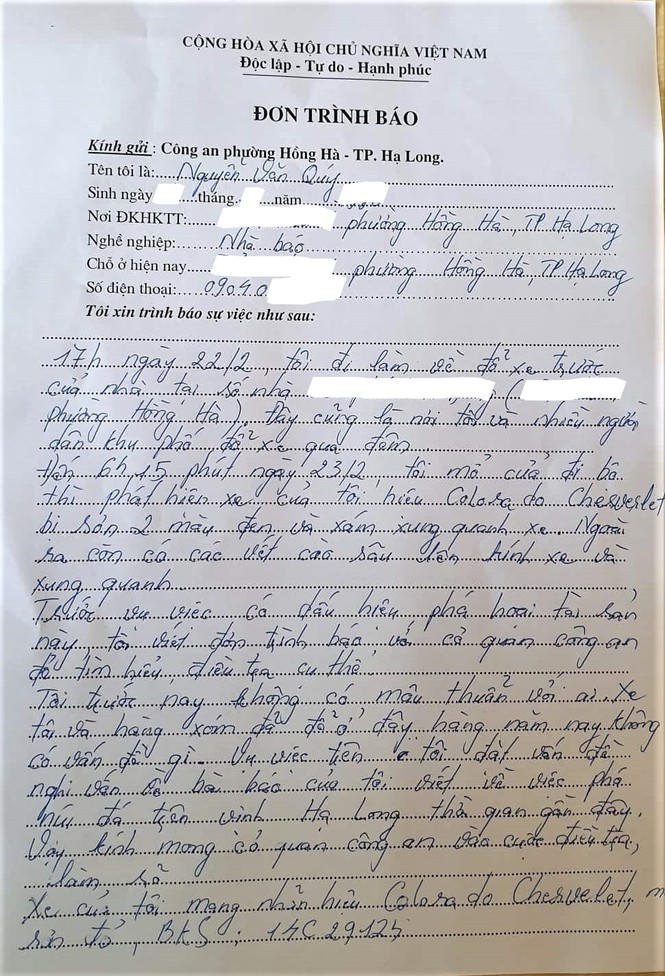 CỘNG HÒA XÃ HỘI CHỦ NGHĨA VIỆT NAM
Độc lập - Tự do - Hạnh phúc
ĐƠN TRÌNH BÁO
Kính gửi : Công an phường Hồng Hà - TP. Hạ Long.
Tên tôi là: Nguyễn Văn Qúy
Sinh ngày tháng năm
Nơi ĐKHKTT: phường Hồng Hà, TP Hạ Long
Nghề nghiệp: Nhà báo
Chỗ ở hiện nay phường Hồng Hà, TP Hạ Long
Số điện thoại: 0904.0
Tôi xin trình báo sự việc như sau:
17h ngày 22/2, tôi đi làm về đỗ xe trước
cửa nhà tại số nhà (
phường Hồng Hà). Đây cũng là nơi tôi và nhiều người
dân khu phố đỗ xe qua đêm
Đến 6h 15 phút ngày 23/2, tôi mở cửa đi bộ
thì phát hiện xe của tôi hiệu Colorado Chesverlet
bị sơn 2 màu đen và xám xung quanh xe. Ngoài
ra còn có các vết cào sâu lên kính xe và
xung quanh
Trước vụ việc có dấu hiệu phá hoại tài sản
này, tôi viết đơn trình báo với cơ quan công an
để tìm hiểu, điều tra cụ thể.
Tôi trước nay không có mâu thuẫn với ai. Xe
tôi và hàng xóm đã đỗ ở đây hàng năm nay không
có vấn đề gì. Vụ việc trên tôi đặt vấn đề
nghi vấn về bài báo của tôi viết về việc phá
núi đá trên vịnh Hạ Long thời gian gần đây.
Vậy kính mong cơ quan công an vào cuộc điều tra,
làm rõ
Xe của tôi mang nhãn hiệu Colorado Chesverlet, m
sơn đỏ, BKS: 14C 29124